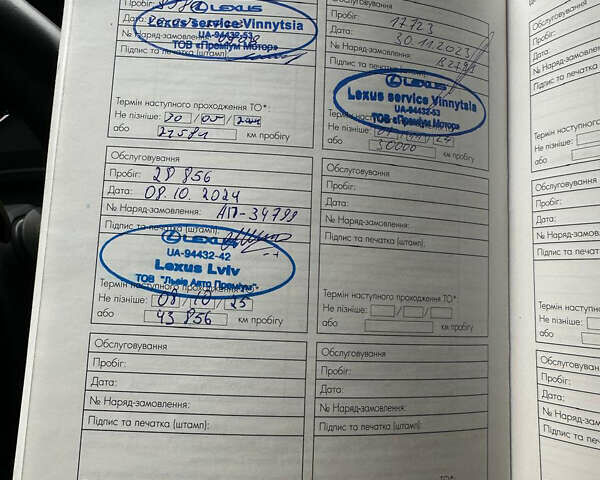 Пробіг:
Дата:
№ Наряд-замовлення:
Підпис та печатка (штамп):
LEXUS
Lexus service Vinnytsia
UA-94432-53
ТОВ «Преміум Мотор»
Термін наступного проходження ТО*:
Не пізніше: 20 / 05 /
або 27571 км пробігу
Пробіг: 17723
Дата: 30.11.2023
№ Наряд-замовлення:
Підпис та печатка
LEXUS
Lexus service Vinnytsia
UA-94432-53
ТОВ «Преміум Мотор»
Термін
Не пізніше:
або 30000 км пробігу
Обслуговування
Пробіг: 28 856
Дата: 08.10.2024
№ Наряд-замовлення: АП-34798
Підпис та печатка (штамп):
LEXUS
UA-94432-42
Lexus Lviv
ТОВ "Львів Авто Преміум"
Термін наступного проходження ТО*:
Не пізніше: 08 / 10 / 25
або 43 856 км пробігу
Обслуговування
Пробіг:
Дата:
№ Наряд-замовлення:
Підпис та печатка (штамп):
Термін наступного проходження ТО*:
Не пізніше: / /
або км пробігу
Обслуговування
Пробіг:
Дата:
№ Наряд-замовлення:
Підпис та печатка (штамп):
Обслуговування
Пробіг:
Дата:
№ Наряд-замовлення:
Підпис та печатка (штамп):
Обслуговування
Пробіг:
Дата:
№ Наряд-замо
Підпис та печатка
Термін наступного
Не пізніше:
або
Обслуговування
Пробіг:
Дата:
№ Наряд-замов
Підпис та печатка
Термін наступного
Не пізніше:
або
Обслуговування
Пробіг:
Дата:
№ Наряд-зам
Підпис та печа